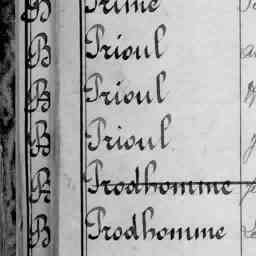 B Prime
B Prioul
B Prioul
B Prioul
Prodhomme
B Prodhomme